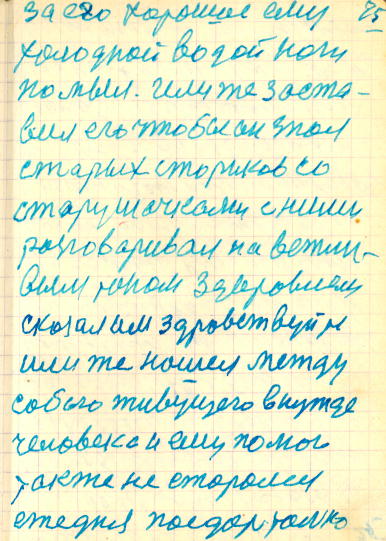 за его хорошое ему 75
холодной водой ноги
помыл. или же заста-
вил его чтобы он знал
старых стариков со
старушачками с ними
разговаривал на вежли-
вым тоном здоровлем
сказал им здравствуйте
или же нашел между
собою живущего в нужде
человека и ему помог
также не старался
ежедня